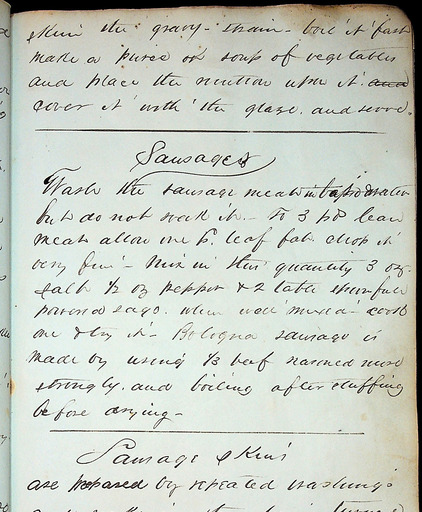 skim the gravy - strain - boil it fast
made a puree or soup of vegetables
and place the mutton upon it and
cover it with the glaze. and serve.
Sausages
Wash the sausage meat in tepid water
but do not soak it - To 3 lean
meat allow one lb. leaf fat. chop it
very fine - Mix in this quantity 3 oz
salt ½ oz pepper & 2 table spoonfuls
powdered sage. when well mixed - cook
one & try it - Bologna sausage is
made by using ⅓ beef seasoned more
strongly. and boiling after stuffing
before drying -
Sausage skins
are prepared by repeated washings